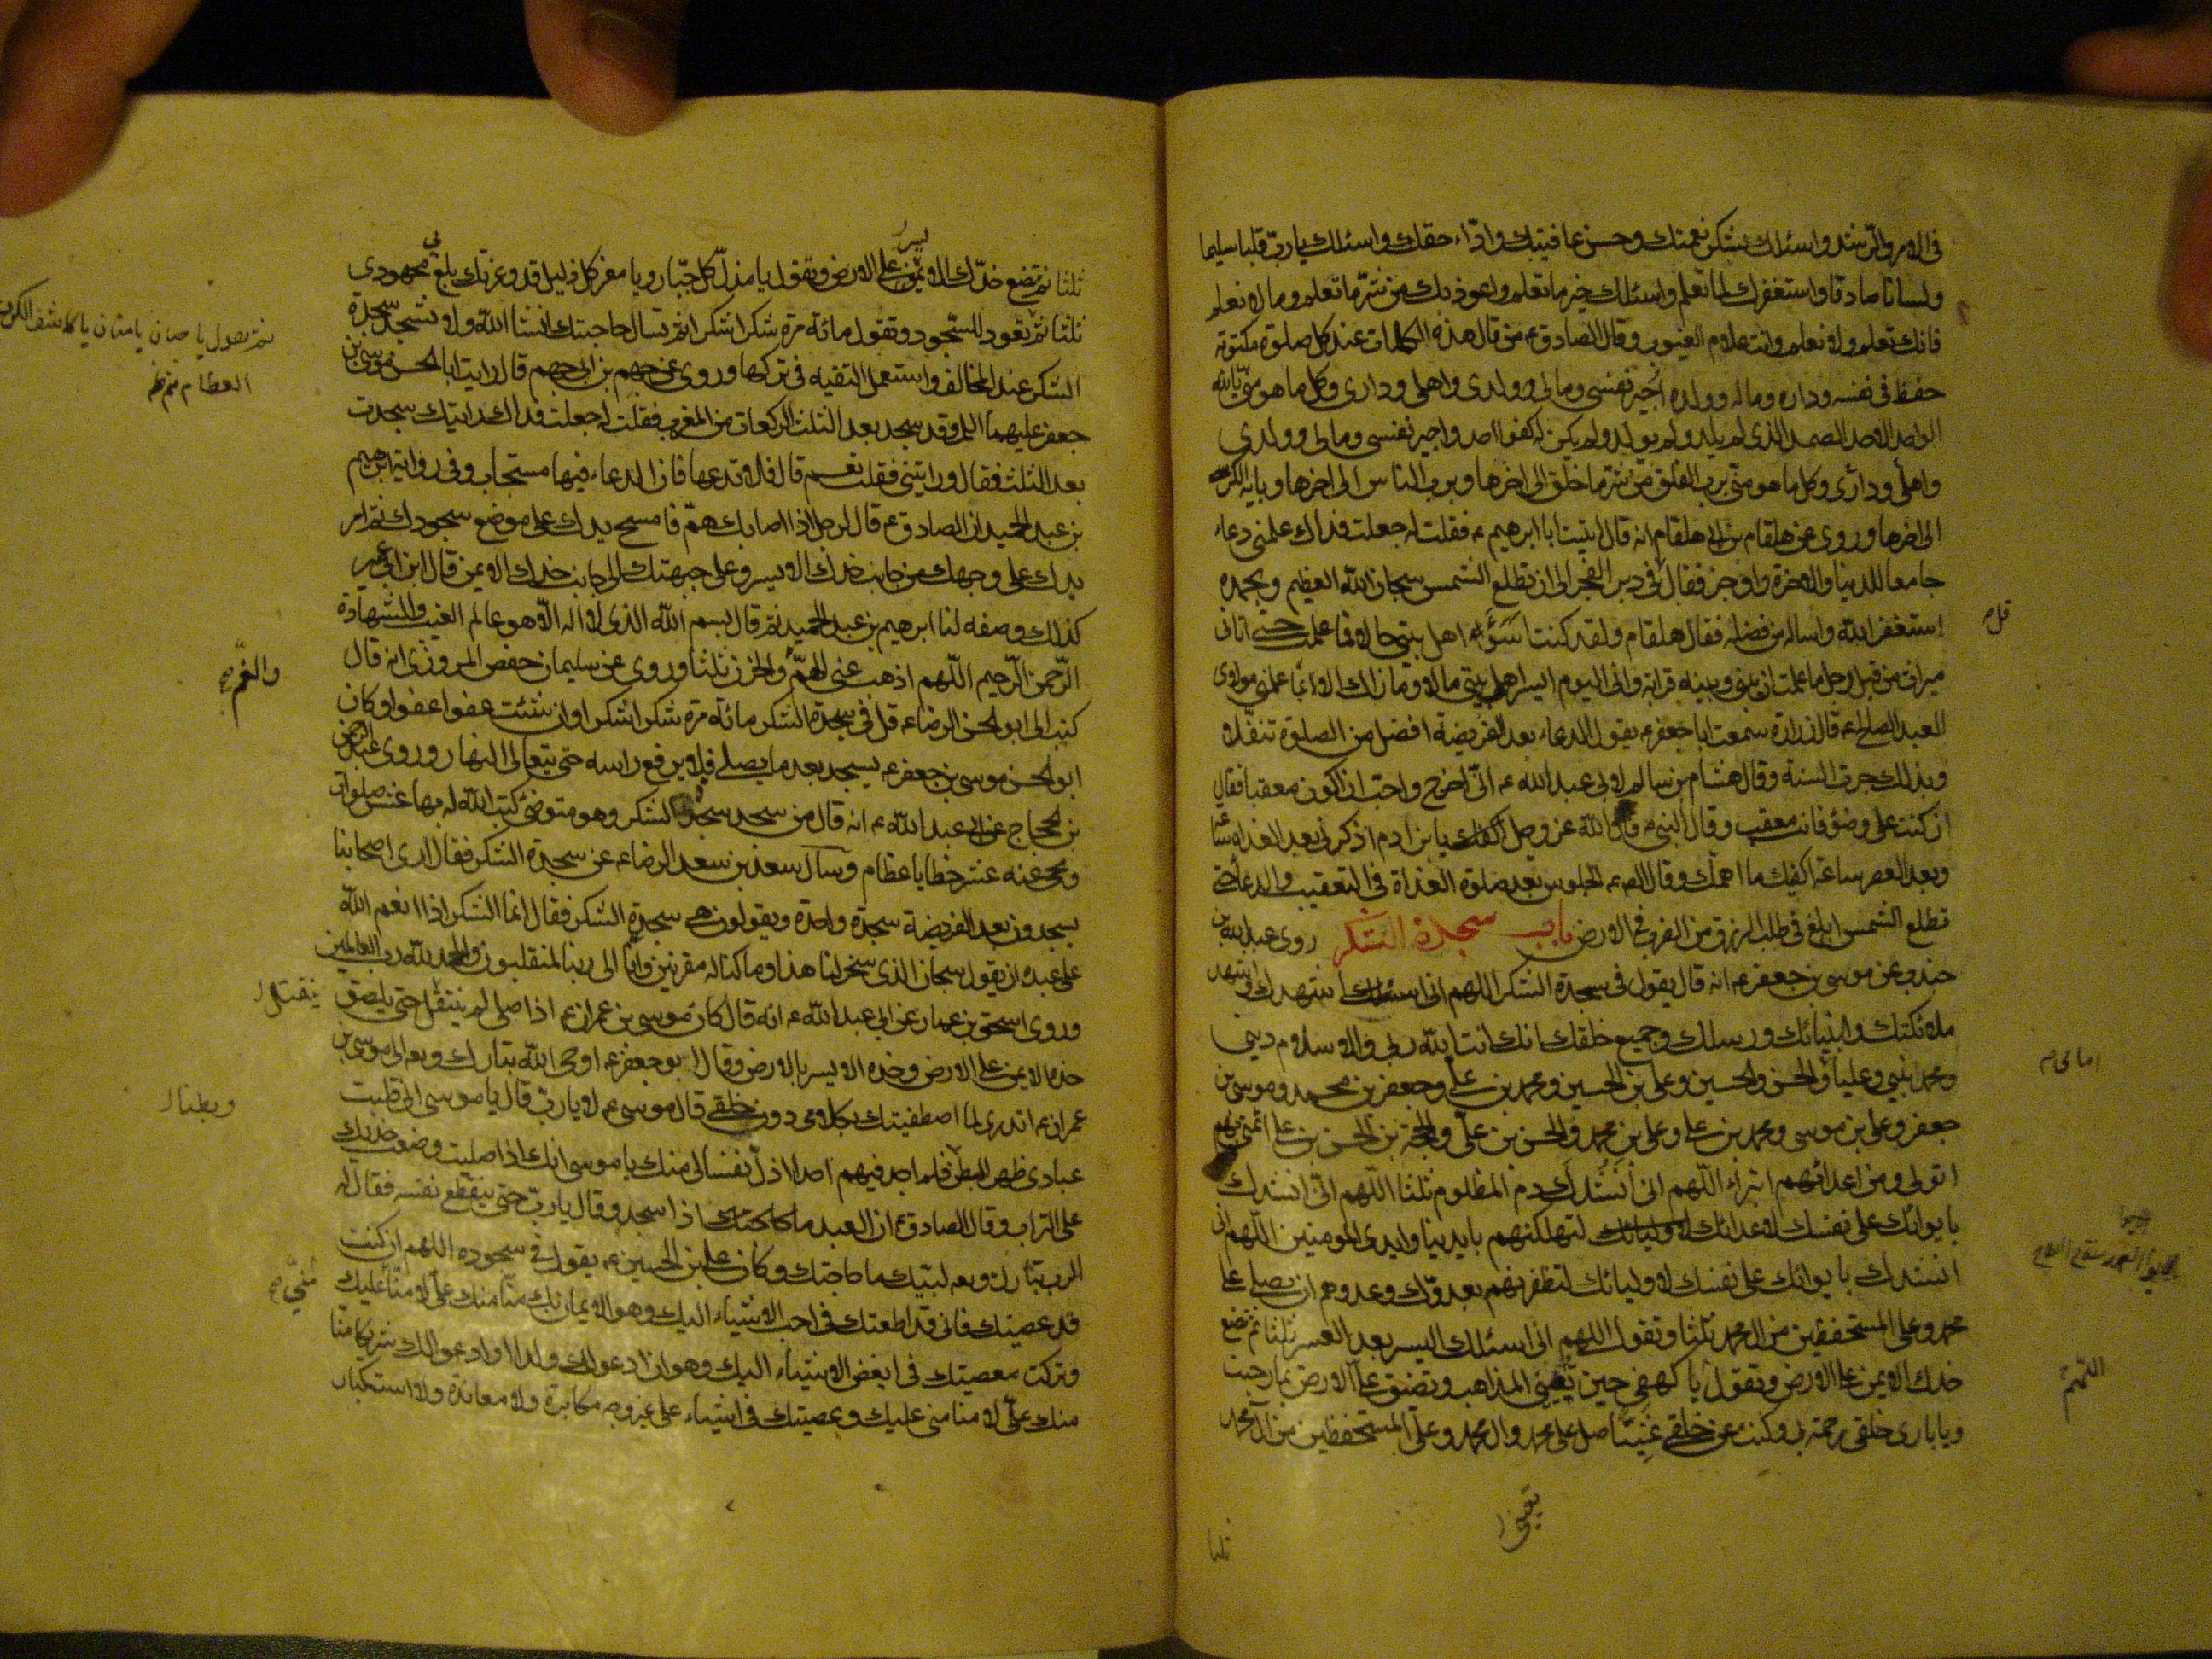 في الامر والرشد واسئلك شكر نعمتك وحسن عافيتك واداء حقك واسئلك يا رب قلبا سليما
ولسانا صادقا واستغفرك لما تعلم واسئلك خير ما تعلم واعوذ بك من شر ما تعلم وما لا نعلم
فانك تعلم ولا نعلم وانت علام الغيوب وقال الصادق ع من قال هذه الكلمات عند كل صلوة مكتوبة
حفظ في نفسه وداره وماله وولده اجير نفسي ومالي وولدي واهلي وداري وكل ما هو مني بالله
الواحد الاحد الصمد الذي لم يلد ولم يولد ولم يكن له كفوا احد واجير نفسي ومالي وولدي
واهلي وداري وكل ما هو مني برب الفلق من شر ما خلق الى اخرها وبرب الناس الى اخرها وباية الكرسي
الى اخرها وروى عن هلقام بن ابي هلقام انه قال اتيت ابا ابراهيم ع فقلت له جعلت فداك علمني دعاء
جامعا للدنيا والاخرة واوجز فقال قل في دبر الفجر الى ان تطلع الشمس سبحان الله العظيم وبحمده
استغفر الله واساله من فضله فقال هلقام ولقد كنت اسوء اهل بيتي حالا فما علمت حتى اتاني
ميراث من قبل رجل ما علمت ان بيني وبينه قرابة واني اليوم ايسر اهل بيتي مالا وما ذلك الا مما علمني مولاي
العبد الصالح ع قال زرارة سمعت ابا جعفر ع يقول الدعاء بعد الفريضة افضل من الصلوة تنفلا
وبذلك جرت السنة وقال هشام بن سالم لابي عبد الله ع اني اخرج واحب ان اكون معقبا فقال
ان كنت على وضوء فانت معقب وقال النبي ص قال الله عز وجل يا بن ادم اذكرني بعد الغداة ساعة
وبعد العصر ساعة اكفك ما اهمك وقال الص ع الجلوس بعد صلوة الغداة في التعقيب والدعاء حتى
تطلع الشمس ابلغ في طلب الرزق من الضرب في الارض باب سجدة الشكر روى عبد الله بن
جندب عن موسى بن جعفر ع انه قال يقول في سجدة الشكر اللهم اني اشهدك واشهد
ملائكتك وانبيائك ورسلك وجميع خلقك انك انت الله ربي والاسلام ديني
ومحمد نبيي وعليا والحسن والحسين وعلي بن الحسين ومحمد بن علي وجعفر بن محمد وموسى بن
جعفر وعلي بن موسى ومحمد بن علي وعلي بن محمد والحسن بن علي والحجة بن الحسن بن علي ائمتي بهم
اتولى ومن اعدائهم اتبراء اللهم اني انشدك دم المظلوم ثلثا اللهم اني انشدك
بايوائك على نفسك لاعدائك لتهلكنهم بايدينا وايدي المومنين اللهم اني
انشدك بايوائك على نفسك لاوليائك لتظفرنهم بعدوك وعدوهم ان تصلي على
محمد وعلى المستحفظين من ال محمد ثلثا وتقول اللهم اني اسئلك اليسر بعد العسر ثلثا ثم تضع
خدك الايمن على الارض وتقول يا كهفي حين تعييني المذاهب وتضيق علي الارض بما رحبت
ويا بارئ خلقي رحمة بي وكنت عن خلقي غنيا صل على محمد وال محمد وعلى المستحفظين من ال محمد
ثلثا
ثلثا ثم تضع خدك الايمن على الارض وتقول يا مذل كل جبار ويا معز كل ذليل قد وعزتك بلغ مجهودي
ثلثا ثم تعود للسجود وتقول مائة مرة شكرا شكرا ثم تسال حاجتك انشا الله ولا تسجد سجدة
الشكر عند المخالف واستعمل التقيه في تركها وروى عن جهم بن ابي جهم قال رايت ابا الحسن موسى بن
جعفر عليهما السلم وقد سجد بعد الثلث الركعات من المغرب فقلت له جعلت فداك رايتك سجدت
بعد الثلث فقال ورايتني فقلت نعم قال فلا تدعها فان الدعاء فيها مستجاب وفي رواية ابرهيم
بن عبد الحميد ان الصادق ع قال لرجل اذا اصابك هم فامسح يدك على موضع سجودك ثم امر
يدك على وجهك من جانب خدك الايسر وعلى جبهتك الى جانب خدك الايمن قال ابن ابي عمير
كذلك وصفه لنا ابرهيم بن عبد الحميد ثم قال بسم الله الذي لا اله الا هو عالم الغيب والشهادة
الرحمن الرحيم اللهم اذهب عني الهم والحزن ثلثا وروى عن سليمان حفص المروزي انه قال
كتب الي ابو الحسن الرضا ع قل في سجدة الشكر مائة مرة شكرا شكرا وان شئت عفوا عفوا وكان
ابو الحسن موسى بن جعفر ع يسجد بعد ما يصلي فلا يرفع راسه حتى يتعالى النهار وروى عبد الرحمن
بن الحجاج عن ابي عبد الله ع انه قال من سجد سجدة الشكر وهو متوضئ كتب الله له بها عشر صلوات
ومحي عنه عشر خطايا عظام وسال سعد بن سعد الرضا ع عن سجدة الشكر فقال ارى اصحابنا
يسجدون بعد الفريضة سجدة واحدة ويقولون هي سجدة الشكر فقال انما الشكر اذا انعم الله
على عبده ان يقول سبحان الذي سخر لنا هذا وما كنا له مقرنين وانا الى ربنا لمنقلبون والحمد لله رب العالمين
وروى اسحق بن عمار عن ابي عبد الله ع انه قال كان موسى بن عمران ع اذا صلى لم ينتقل حتى يلصق
خده الايمن على الارض وخده الايسر بالارض وقال ابو جعفر ع اوحى الله تبارك وتع الى موسى بن
عمران ع اتدري لما اصطفيتك بكلامي دون خلقي قال موسى ع لا يا رب قال يا موسى اني قلبت
عبادي ظهر البطن فلم اجد فيهم احدا اذل نفسا لي منك يا موسى انك اذا صليت وضعت خديك
على التراب وقال الصادق ع ان العبد اذا سجد وقال يا رب حتى ينقطع نفسه فقال له
الرب تبارك وتع لبيك ما حاجتك وكان علي بن الحسين ع يقول في سجوده اللهم ان كنت
قد عصيتك فاني قد اطعتك في احب الاشياء اليك وهو الايمان بك منا منك علي لا منا عليك
وتركت معصيتك في ابغض الاشياء اليك وهو ان ادعو لك ولدا او ادعو لك شريكا منا
منك علي لا منا مني عليك وعصيتك في اشياء على غير وجه مكابرة ولا معاندة ولا استكبار
والغم
وبطنا